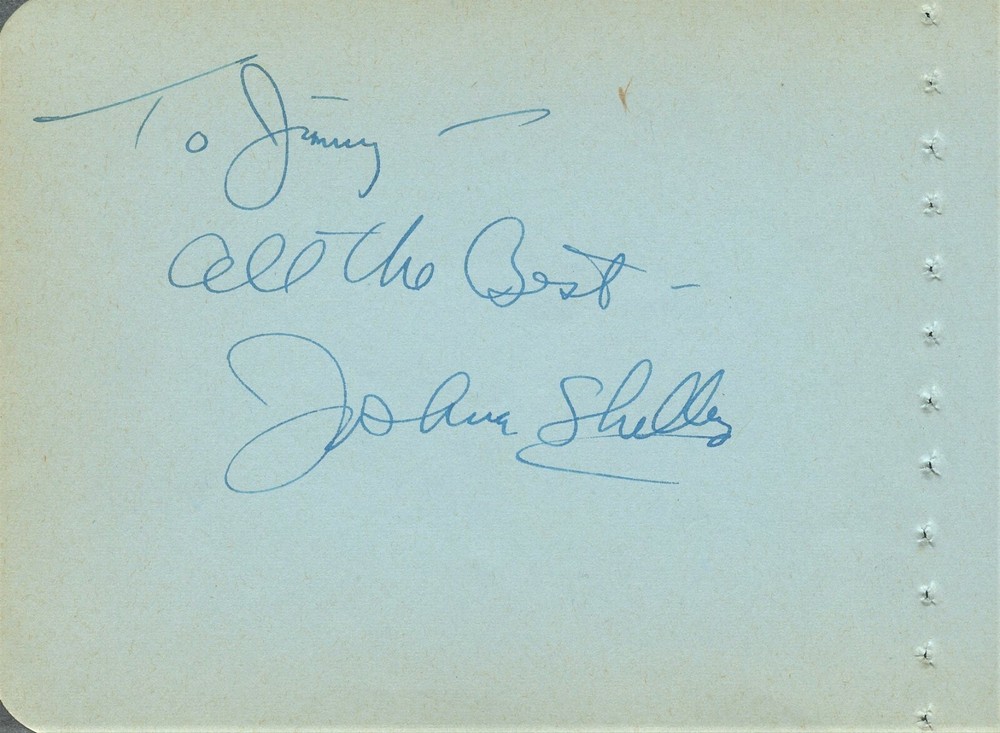 To Jimmy —
All the Best -
Joshua Shelley